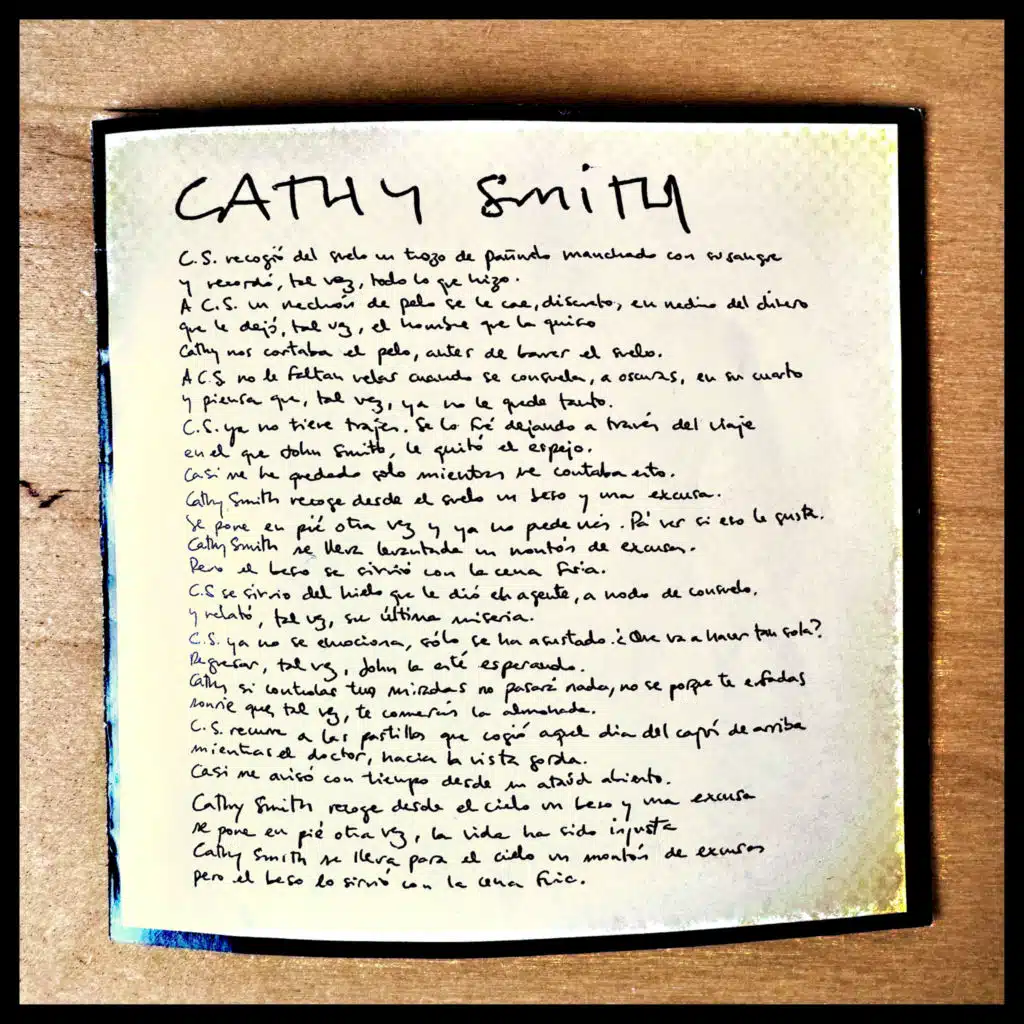 CATHY SMITH
C.S. recogió del suelo un trozo de pañuelo manchado con su sangre
y recordó, tal vez, todo lo que hizo.
A C.S. un mechón de pelo se le cae, discreto, en medio del dinero
que le dejó, tal vez, el hombre que la quiso
Cathy nos cortaba el pelo, antes de barrer el suelo.
A C.S. no le faltan velas cuando se consuela, a oscuras, en su cuarto
y piensa que, tal vez, ya no le quede tanto.
C.S. ya no tiene trajes. Se lo fué dejando a través del viaje
en el que John Smith, le quitó el espejo.
Casi me he quedado solo mientras me contaba esto.
Cathy Smith recoge desde el suelo un beso y una excusa.
Se pone en pié otra vez y ya no puede más. Pá ver si eso le gusta.
Cathy Smith se lleva levantada un montón de excusas.
Pero el beso se sirvió con la cena fría.
C.S se sirvio del hielo que le dió el agente, a modo de consuelo.
y relató, tal vez, su última miseria.
C.S. ya no se emociona, sólo se ha asustado. ¿Que va a hacer tan sola?
Regresar, tal vez, John la esté esperando.
Cathy si controlas tus miradas no pasará nada, no se porque te enfadas
sonrie que, tal vez, te comerás la almohada.
C.S. recurre a las pastillas que cogió aquel dia del cajón de arriba
mientras el doctor, hacia la vista gorda.
Casi me avisó con tiempo desde su ataúd abierto.
Cathy Smith recoge desde el cielo un beso y una excusa
se pone en pié otra vez, la vida ha sido injusta
Cathy Smith se lleva para el cielo un montón de excusas
pero el beso lo sirvió con la cena fría.